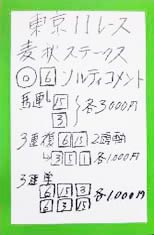 東京11レース
麦秋ステークス
◎ 6 ソルティコメント
馬連 15 3 } 各3000円
3連複 6 15 2頭軸
→ 3 5 1 各1000円
3連単
6 15 3
6 3 15 各1000円